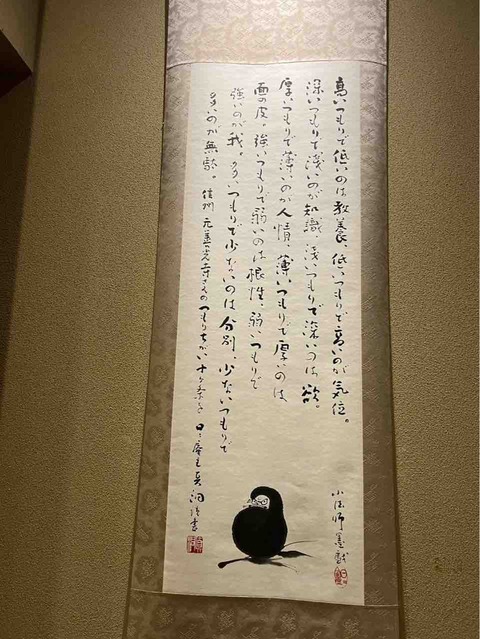 高いつもりで低いのは教養、低いつもりで高いのが気位。
深いつもりで浅いのが知識、浅いつもりで深いのは欲。
厚いつもりで薄いのが人情、薄いつもりで厚いのは
面の皮。強いつもりで弱いのは根性、弱いつもりで
強いのが我。多いつもりで少ないのは分別、少ないつもりで
多いのが無駄。信州 元善光寺さまのつもりちがい十ヶ条を
小法師墨戯